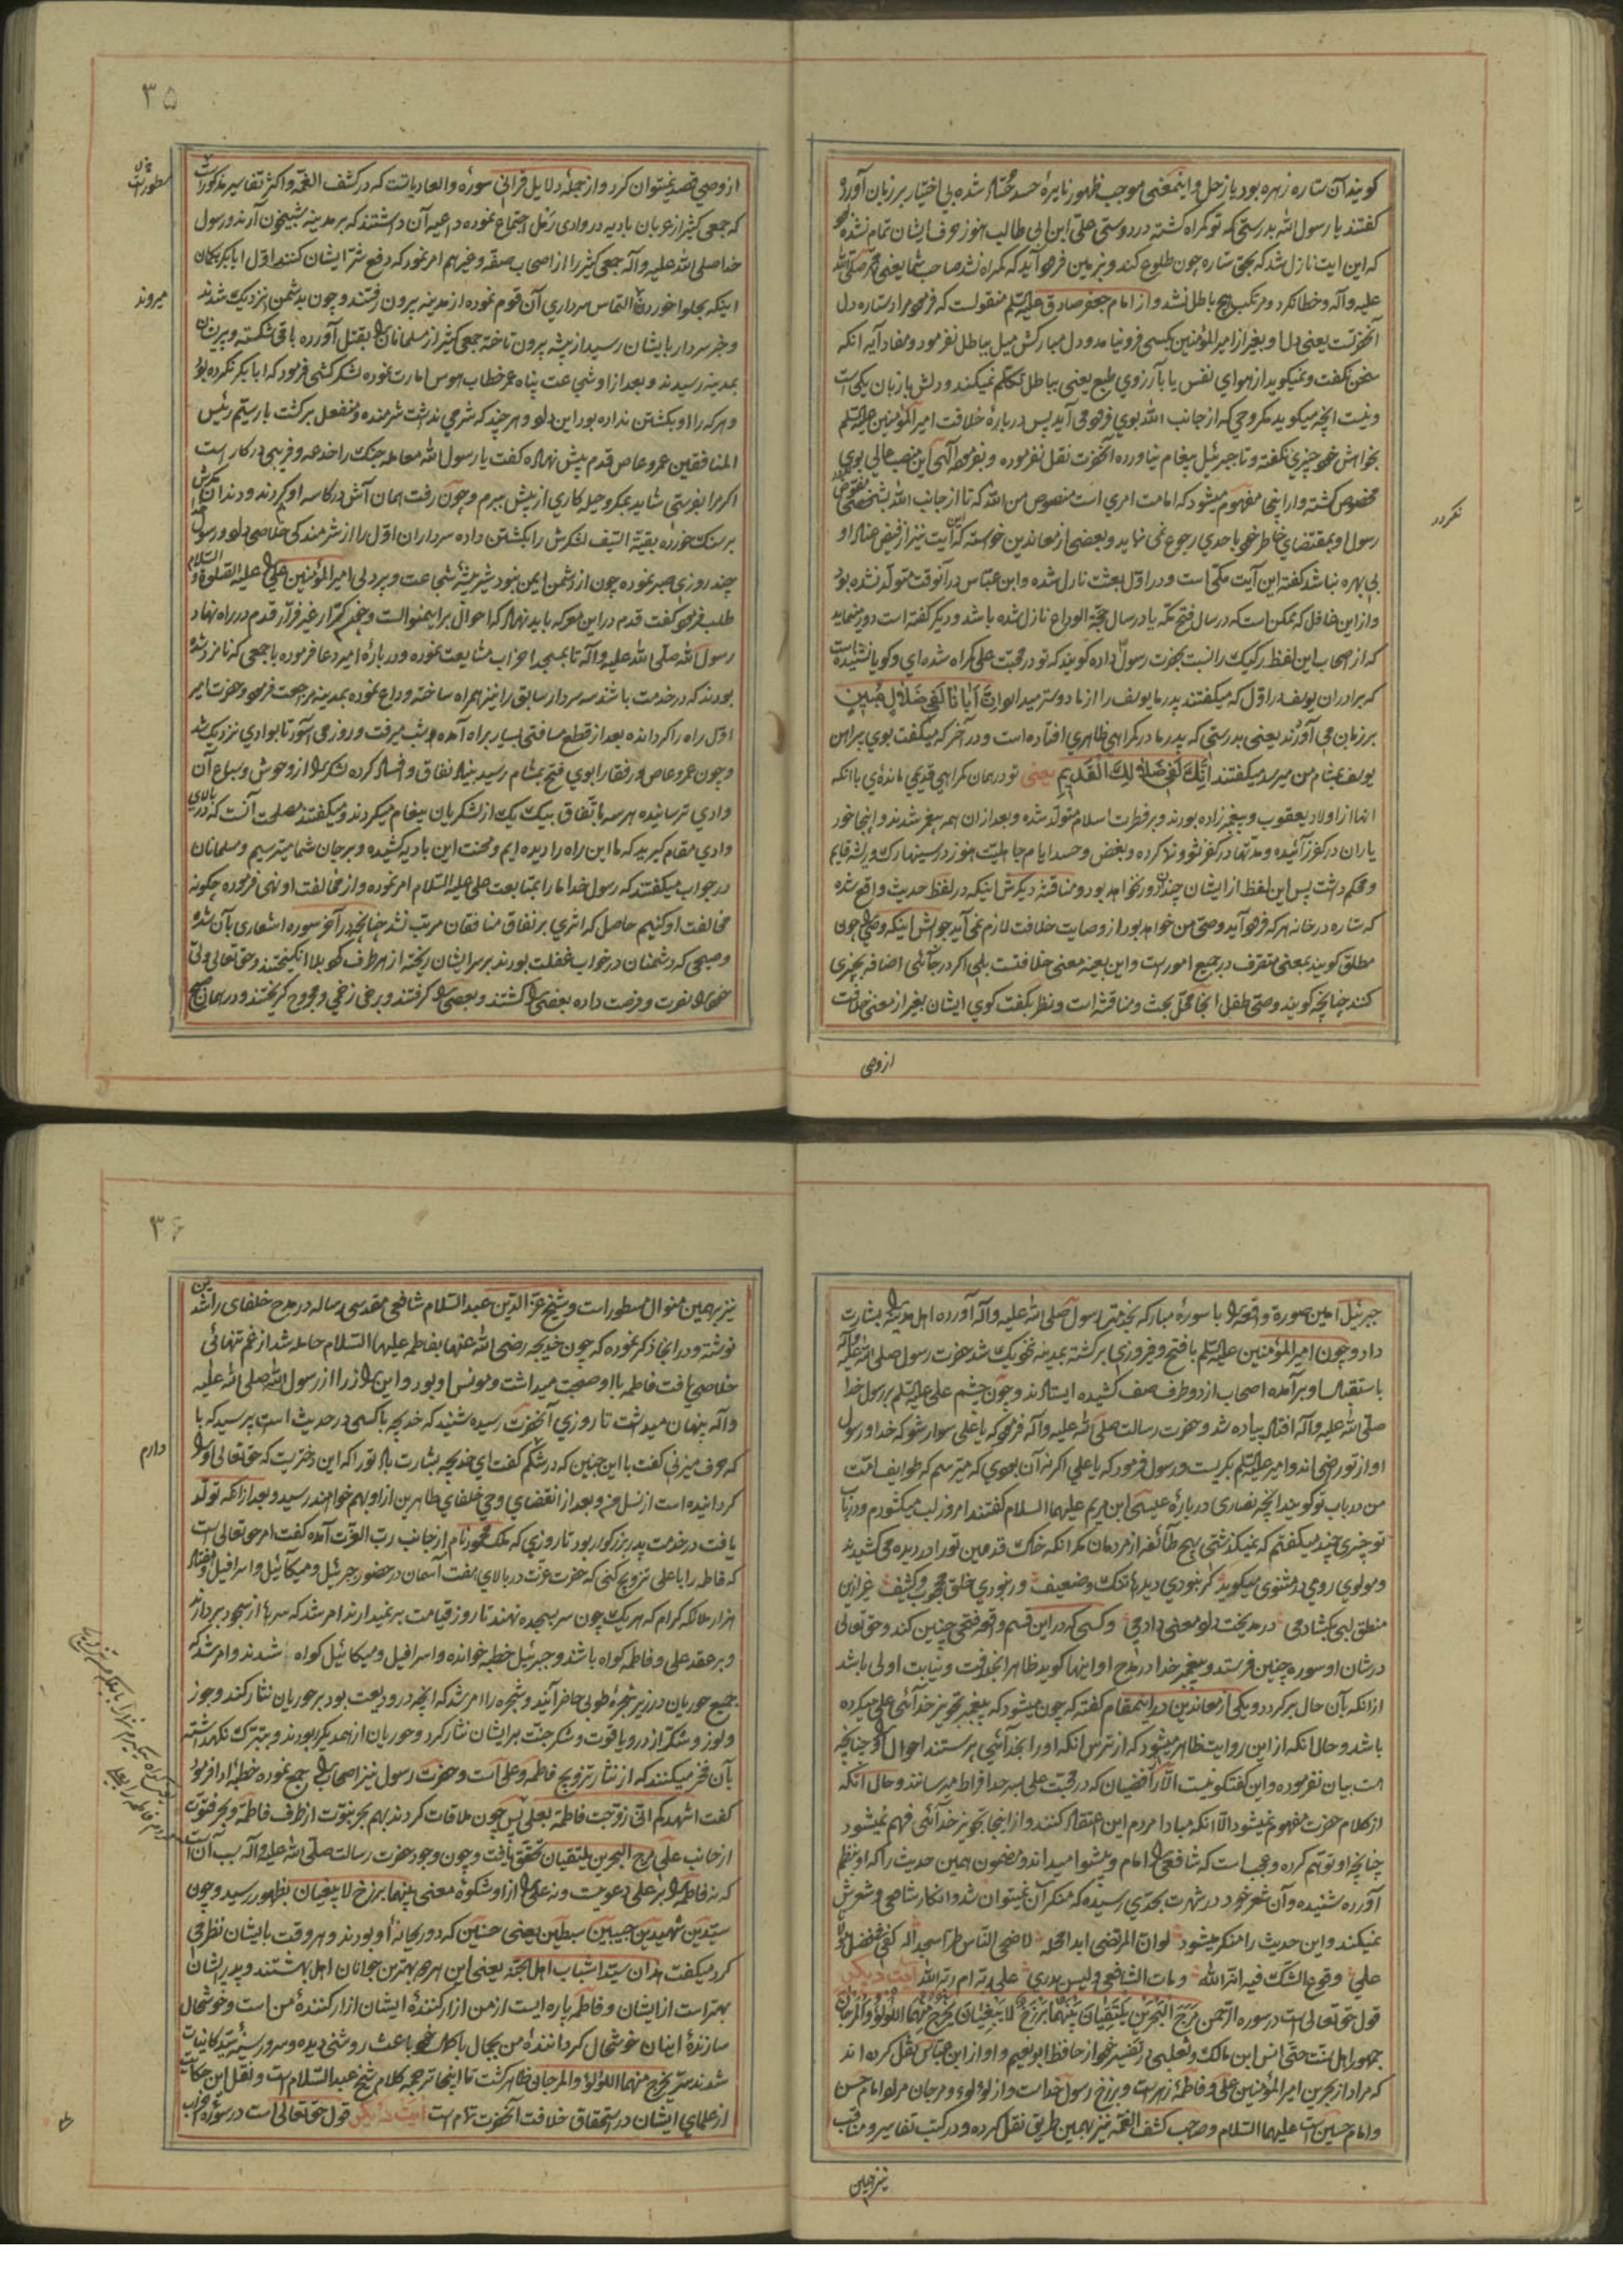 کویند آن ستاره زهره بود یا زحل و اینمعنی موجب ظهور نایرهٔ حسد شده بی اختیار بر زبان آورد
کفتند یا رسول الله بدرستی که تو کمراه کشتهٔ در دوستی علی ابن ابی طالب هنوز حرف ایشان تمام نشده
که این ایت نازل شد که بحق ستاره چون طلوع کند و بزمین فرو آید که کمراه نشد صاحب شما یعنی محمد صلی الله
علیه وآله و خطا نکرد و مرتکب هیچ باطل نشد و از امام جعفر صادق علیه السلم منقولست که فرمود مراد ستاره دل
آنحضرتست یعنی دل او بغیر از امیرالمؤمنین بکسی فرو نیامد و دل مبارکش میل بباطل نفرمود و مفاد آیه انکه
سخن نکفت و نمیکوید از هوای نفس یا بآرزوی طبع یعنی بباطل تکلم نمیکند و دلش با زبان یکی است
و نیست انچه میکوید مکر وحی که از جانب الله بوی فرو می آید پس در بارهٔ خلافت امیرالمؤمنین علیه السلم
بخواهش خود چیزی نکفته و تا جبرئیل پیغام نیاورده آنحضرت نقل نفرموده و بفرموده آلهی این منصب عالی بوی
مخصوص کشته و از اینجا مفهوم میشود که امامت امری است منصوص من الله که تا از جانب الله بشخصی مفوض
نکردد
رسول او بمقتضای خاطر خود باحدی رجوع نمی نماید و بعضی از معاندین خواسته که این آیت نیز از فیض عناد او
بی بهره نباشد کفته این آیت مکی است و در اول بعثت نازل شده و ابن عباس در آنوقت متولد نشده بود
و از این غافل که ممکن است که در سال فتح مکه یا در سال حجة الوداع نازل شده باشد و دیکر کفته است دور مینماید
که اصحاب این لفظ رکیک را نسبت بحضرت رسول داده کویند که تو در محبت علی کمراه شدهٔ ای و کویا نشنیده است
که برادران یوسف در اول که میکفتند پدر ما یوسف را از ما دوستر میدارد إِنَّ أَبَانَا لَفِي ضَلَالٍ مُبِينٍ
بر زبان می آورند یعنی بدرستی که پدر ما در کمراهی ظاهری افتاده است و در آخر که میکفت بوی پیراهن
یوسف بمشام من میرسد میکفتند إِنَّكَ لَفِي ضَلَالِكَ الْقَدِيمِ یعنی تو در همان کمراهی قدیمی ماندهٔ با انکه
انها از اولاد یعقوب و پیغمبر زاده بودند و بر فطرت اسلام متولد شده و بعد از ان همه پیغمبر شدند و اینجا خود
یاران در کفر زائیده و مدتها در کفر نشو و نما کرده و بغض و حسد ایام جاهلیت هنوز در سینها رک و ریشه قایم
و محکم داشت پس این لفظ از ایشان چندان دور نخواهد بود و مناقشهٔ دیکرش اینکه در لفظ حدیث واقع شده
که ستاره در خانه هر که فرود آید وصی من خواهد بود از وصایت خلافت لازم نمی آید جوابش اینکه وصی را چون
مطلق کویند بمعنی متصرف در جمیع امور است و این بعینه معنی خلافتست بلی اکر در جائی اضافه بچیزی
کنند چنانچه کویند وصی طفل انجا محل بحث و مناقشه است و نظر بکفت کوی ایشان بغیر از معنی خلافت
از وصی
۳۵
از وصی قصد نمیتوان کرد و از جمله دلایل قرانی سورهٔ والعادیاتست که در کشف الغمه و اکثر تفاسیر مذکور است
که جمعی کثیر از عربان بادیه در وادی رمل اجتماع نموده داعیه آن داشتند که بر مدینه شبیخون آرند و رسول
خدا صلی الله علیه وآله جمعی کثیر را از اصحاب صفه و غیرهم امر نمود که دفع شر ایشان کنند اول ابابکر بکمان
میروند
اینکه بحلوا خوردن التماس سرداری آن قوم نموده از مدینه بیرون رفتند و چون بدشمن نزدیک شدند
و خبر سردار بایشان رسید از بیشه بیرون تاخته جمعی کثیر از مسلمانان را بقتل آورده باقی شکسته و پریشان
بمدینه رسیدند و بعد از او شجاعت پناه عمر خطاب هوس امارت نموده لشکر کشی فرمود که ابابکر نکرده بود
و هر که را او بکشتن نداده بود این داد و هر چند که شرمی نداشت شرمنده و منفعل برکشت بار سیم رئیس
المنافقین عمرو عاص قدم پیش نهاده کفت یا رسول الله معامله جنک را خدعه و فریبی در کار است
اکر مرا بفرستی شاید بمکر و حیله کاری از پیش ببرم و چون رفت همان آش در کاسه او کردند و دندان مکرش
بر سنک خورده بقیة السیف لشکرش را بکشتن داده سرداران اول را از شرمندکی خلاصی داد و رسول خدا
چند روزی صبر نموده چون از دشمن ایمن نبود شیر بیشهٔ شجاعت و پردلی امیرالمؤمنین علی را علیه الصلوة والسلام
طلب فرمود کفت قدم در این معرکه باید نهاد که احوال بر اینمنوالست و حیدر کرار غیر فرار قدم در راه نهاد
رسول الله صلی الله علیه وآله تا بمسجد احزاب مشایعت نموده و در بارهٔ امیر دعا فرموده با جمعی که نامزد شده
بودند که در خدمت باشند سه سردار سابق را نیز همراه ساخته وداع نموده بمدینه مراجعت فرمود و حضرت امیر
اول راه را کردانده بعد از قطع مسافتی بسیار براه آمده و بشب میرفت و روز می آسود تا بوادی نزدیک شد
و چون عمرو عاص و رفقا را بوی فتح بمشام رسید بنیاد نفاق و فساد کرده لشکر را از وحوش و سباع آن
وادی ترسانیده هر سه باتفاق بیک یک از لشکریان پیغام میکردند و میکفتند مصلحت آنست که در بالای
وادی مقام کیرید که ما این راه را دیده ایم و محنت این بادیه کشیده و بر جان شما میترسیم و مسلمانان
در جواب میکفتند که رسول خدا ما را بمتابعت علی علیه السلام امر نموده و از مخالفت او نهی فرموده چکونه
مخالفت او کنیم حاصل که اثری بر نفاق منافقان مرتب نشد چنانچه در آخر سوره اشعاری بآن شده
و صبحی که دشمنان در خواب غفلت بودند بر سر ایشان ریخته از هر طرف کرد بلا انکیختند و حق تعالی ولی
خود را نصرت و فرصت داده بعضی را کشتند و بعضی را کرفتند و برخی زخمی و مجروح کریختند و در همان صبح
جبرئیل امین صورة واقعه را با سورهٔ مبارکه بخدمت رسول صلی الله علیه وآله آورده اهل مدینه را بشارت
داد و چون امیرالمؤمنین علیه السلم با فتح و فیروزی برکشته بمدینه نزدیک شد حضرت رسول صلی الله علیه وآله
باستقبال او برآمده اصحاب از دو طرف صف کشیده ایستادند و چون چشم علی علیه السلم بر رسول خدا
صلی الله علیه وآله افتاد پیاده شد و حضرت رسالت صلی الله علیه وآله فرمود که یا علی سوار شو که خدا و رسول
او از تو راضی اند و امیر علیه السلم بکریست و رسول فرمود که یا علی اکر نه آن بودی که میترسم که طوایف امت
من در باب تو کویند انچه نصاری در بارهٔ عیسی ابن مریم علیهما السلام کفتند امروز لب میکشودم و در باب
تو چیزی چند میکفتم که نمیکذشتی بهیچ طائفه از مردمان مکر انکه خاک قدمین تو را در دیده می کشیدند
و مولوی رومی در مثنوی میکوید کر نبودی دیدها تنک و ضعیف ور نبودی خلق محجوب و کثیف غیر ازین
منطق لبی بکشادمی در مدیحت داد معنی دادمی و کسی که در این قسم واقعه فتحی چنین کند و حق تعالی
در شان او سوره چنین فرستد و پیغمبر خدا در مدح او اینها کوید ظاهرا بخلافت و نیابت اولی باشد
از انکه بآن حال برکردد و یکی از معاندین در اینمقام کفته که چون میشود که پیغمبر تجویز خدائی علی میکرده
باشد و حال انکه از این روایت ظاهر میشود که از ترس انکه او را بخدائی پرستند احوال او را چنانچه
هست بیان نفرموده و این کفتکو نیست الا رافضیان که در محبت علی بسرحد افراط میرسانند و حال انکه
از کلام حضرت مفهوم نمیشود الا انکه مبادا مردم این اعتقاد کنند و از اینجا تجویز خدائی فهم نمیشود
چنانچه او توهم کرده و عجب است که شافعی را امام و پیشوا میداند و مضمون همین حدیث را که او بنظم
آورده شنیده و آن شعر خود در شهرت بحدی رسیده که منکر آن نمیتوان شد و انکار شافعی و شعرش
نمیکند و این حدیث را منکر میشود لو ان المرتضی ابدا محله لاضحی الناس طرا سجدا له کفی فی فضل مولا
علی وقوع الشک فیه انه الله ومات الشافعی ولیس یدری علی ربه ام ربه الله آیت دیکر
قول حق تعالی است در سوره الرحمن مَرَجَ الْبَحْرَيْنِ يَلْتَقِيَانِ بَيْنَهُمَا بَرْزَخٌ لَا يَبْغِيَانِ يَخْرُجُ مِنْهُمَا اللُّؤْلُؤُ وَالْمَرْجَانُ
جمهور اهل سنت حتی انس ابن مالک و ثعلبی در تفسیر خود از حافظ ابو نعیم و او از ابن عباس نقل کرده اند
که مراد از بحرین امیرالمؤمنین علی و فاطمهٔ زهراست و برزخ رسول خداست و از لؤلؤ و مرجان مراد امام حسن
و امام حسین است علیهما السلام و صاحب کشف الغمه نیز بهمین طریق نقل کرده و در کتب تفاسیر و مناقب
نیز همین
۳۶
نیز بهمین منوال مسطور است و شیخ عز الدین عبد السلام شافعی مقدسی رساله در مدح خلفای راشدین
نوشته و در انجا ذکر نموده که چون خدیجه رضی الله عنها بفاطمه علیهما السلام حامله شد از غم تنهائی
خلاصی یافت فاطمه با او صحبت میداشت و مونس او بود و این راز را از رسول الله صلی الله علیه
وآله پنهان میداشت تا روزی آنحضرت رسیده شنید که خدیجه با کسی در حدیث است پرسید که با
که حرف میزنی کفت با این جنین که در شکم دارم کفت ای خدیجه بشارت باد تو را که این دختریست که حق تعالی او را
کردانیده است از نسل من و بعد از انقضای وحی خلفای طاهرین از او بهم خواهند رسید و بعد از انکه تولد
یافت در خدمت پدر بزرکوار بود تا روزی که ملک محمود نام از جانب رب العزت آمده کفت امر حق تعالی است
که فاطمه را با علی تزویج کنی که حضرت عزت در بالای هفت آسمان در حضور جبرئیل و میکائیل و اسرافیل و هفتاد
هزار ملائکه کرام که هر یک چون سر بسجده نهند تا روز قیامت بر نمیدارند امر شد که سرها از سجود بردارند
و بر عقد علی و فاطمه کواه باشند و جبرئیل خطبه خوانده و اسرافیل و میکائیل کواه شدند و امر شد که
جمیع حوریان در زیر شجرهٔ طوبی حاضر آیند و شجره را امر شد که انچه در او ودیعت بود بر حوریان نثار کند و جوز
و لوز و شکر از در و یاقوت و شکر جنت بر ایشان نثار کرد و حوریان از همدیکر ربودند و بتبرک نکهداشته
بآن فخر میکنند که از نثار تزویج فاطمه و علی است و حضرت رسول نیز اصحاب را جمع نموده خطبهٔ ادا فرمود
کفت اشهدکم انی زوجت فاطمة بعلی پس چون ملاقات کردند بهم بحر نبوت از طرف فاطمه و بحر فتوت
از جانب علی مرج البحرین یلتقیان تحقق یافت و چون وجود حضرت رسالت صلی الله علیه وآله سبب آن است
که نه فاطمه را بر علی دعویست و نه علی را از او شکوه معنی بینهما برزخ لا یبغیان بظهور رسید و چون
سیدین شهیدین حبیبین سبطین یعنی حسنین که دو ریحانهٔ او بودند و هر وقت بایشان نظر می
کرد میکفت هذان سیدا شباب اهل الجنة یعنی این هر دو بهترین جوانان اهل بهشتند و پدر ایشان
بهتر است از ایشان و فاطمه پاره ایست از من ازار کنندهٔ ایشان ازار کنندهٔ من است و خوشحال
سازندهٔ اینان خوشحال کردانندهٔ من بجمال با کمال خود باعث روشنی دیده و سرور سینهٔ سید کائنات
شدند سر یخرج منهما اللؤلؤ والمرجان ظاهر کشت تا اینجا ترجمه کلام شیخ عبد السلام است و نقل این حکایت
از علمای ایشان در استحقاق خلافت آنحضرت تمام است آیت دیکر قول حق تعالی است در سورهٔ احزاب